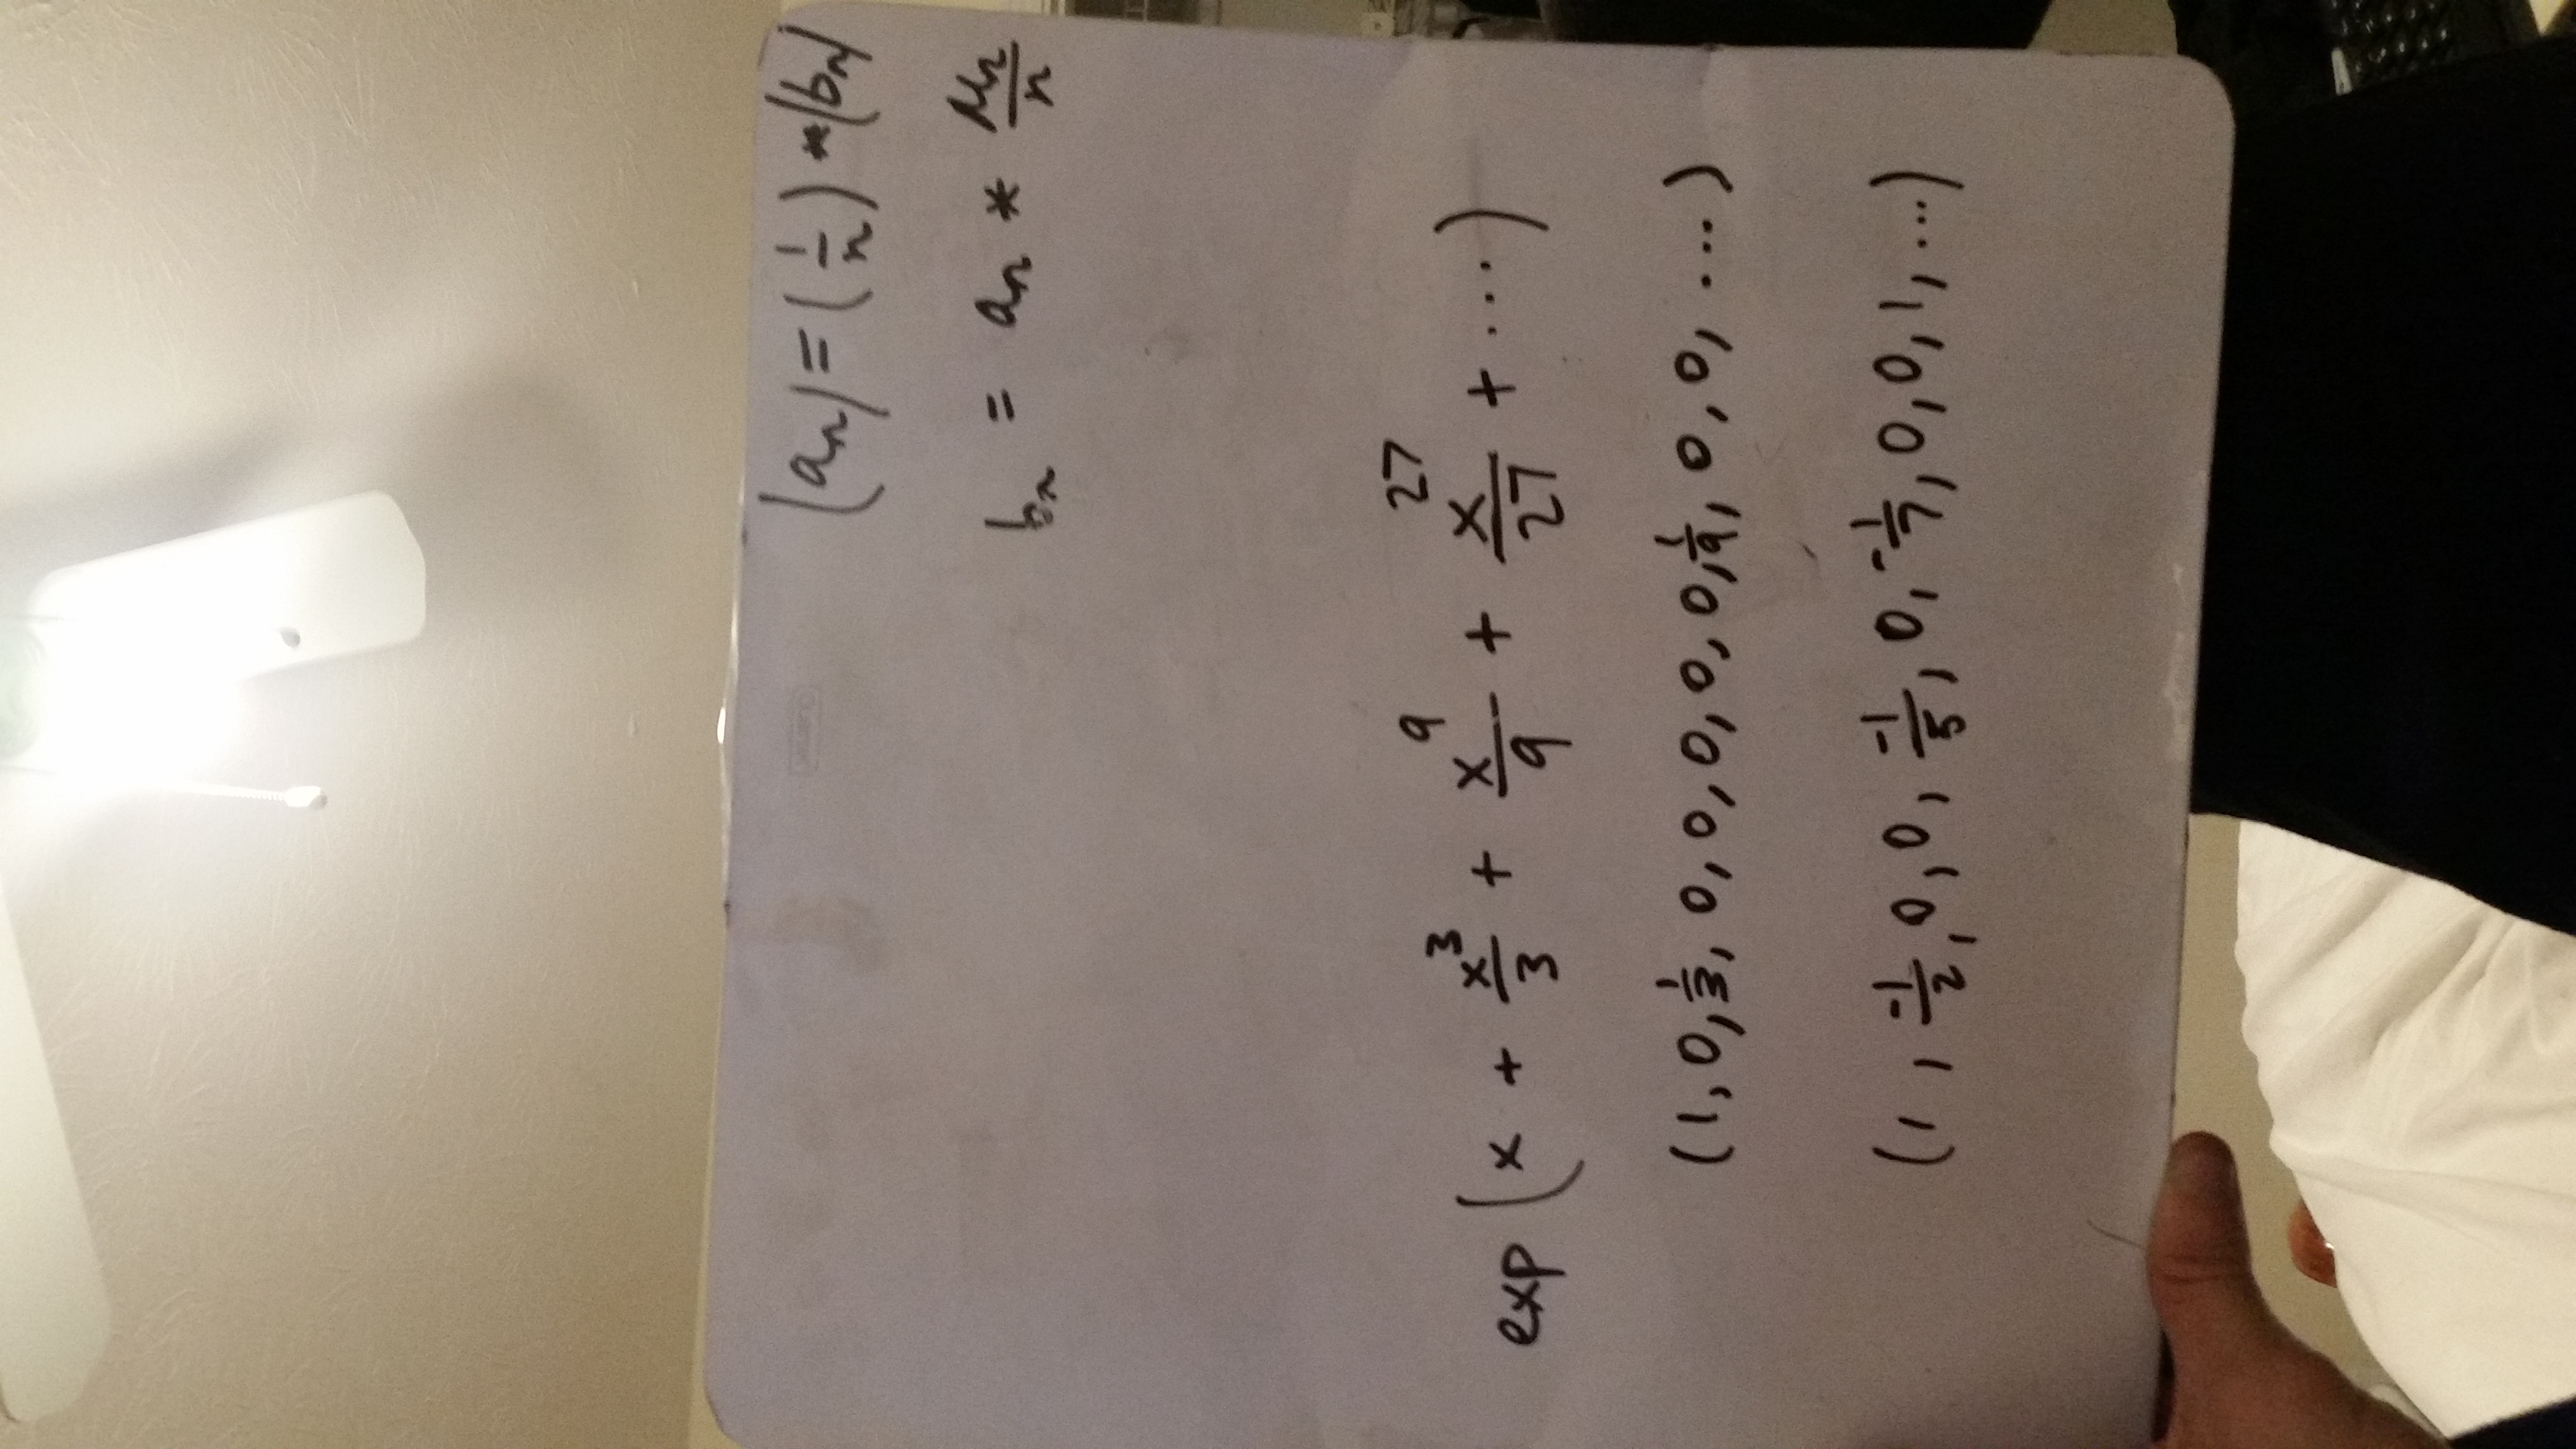 (aₙ) = (1/n) * (bₙ)
bₙ = aₙ * μₙ/n
exp (x + x³/3 + x⁹/9 + x²⁷/27 + ...)
(1, 0, 1/3, 0, 0, 0, 0, 0, 1/9, 0, 0, ...)
(1, -1/2, 0, 0, -1/5, 0, -1/7, 0, 0, 1, ...)